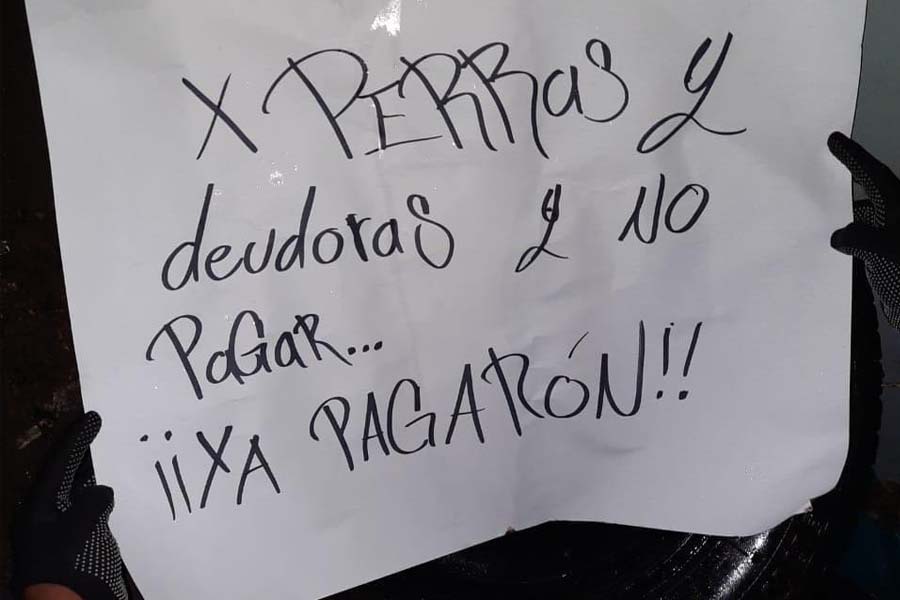 X PERRas y
deudoras y NO
PaGaR...
¡¡XA PAGARÓN!!